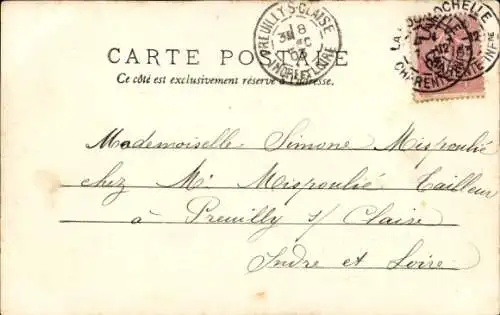 PREUILLY-S-CLAISE
18
DEC
03
INDRE ET LOIRE
LA ROCHELLE
CHARENTE INFRE
CARTE POSTALE
Ce côté est exclusivement réservé à l'adresse.
Mademoiselle Simone Mispoulié
chez Mr Mispoulié Tailleur
à Preuilly s/ Claise
Indre et Loire